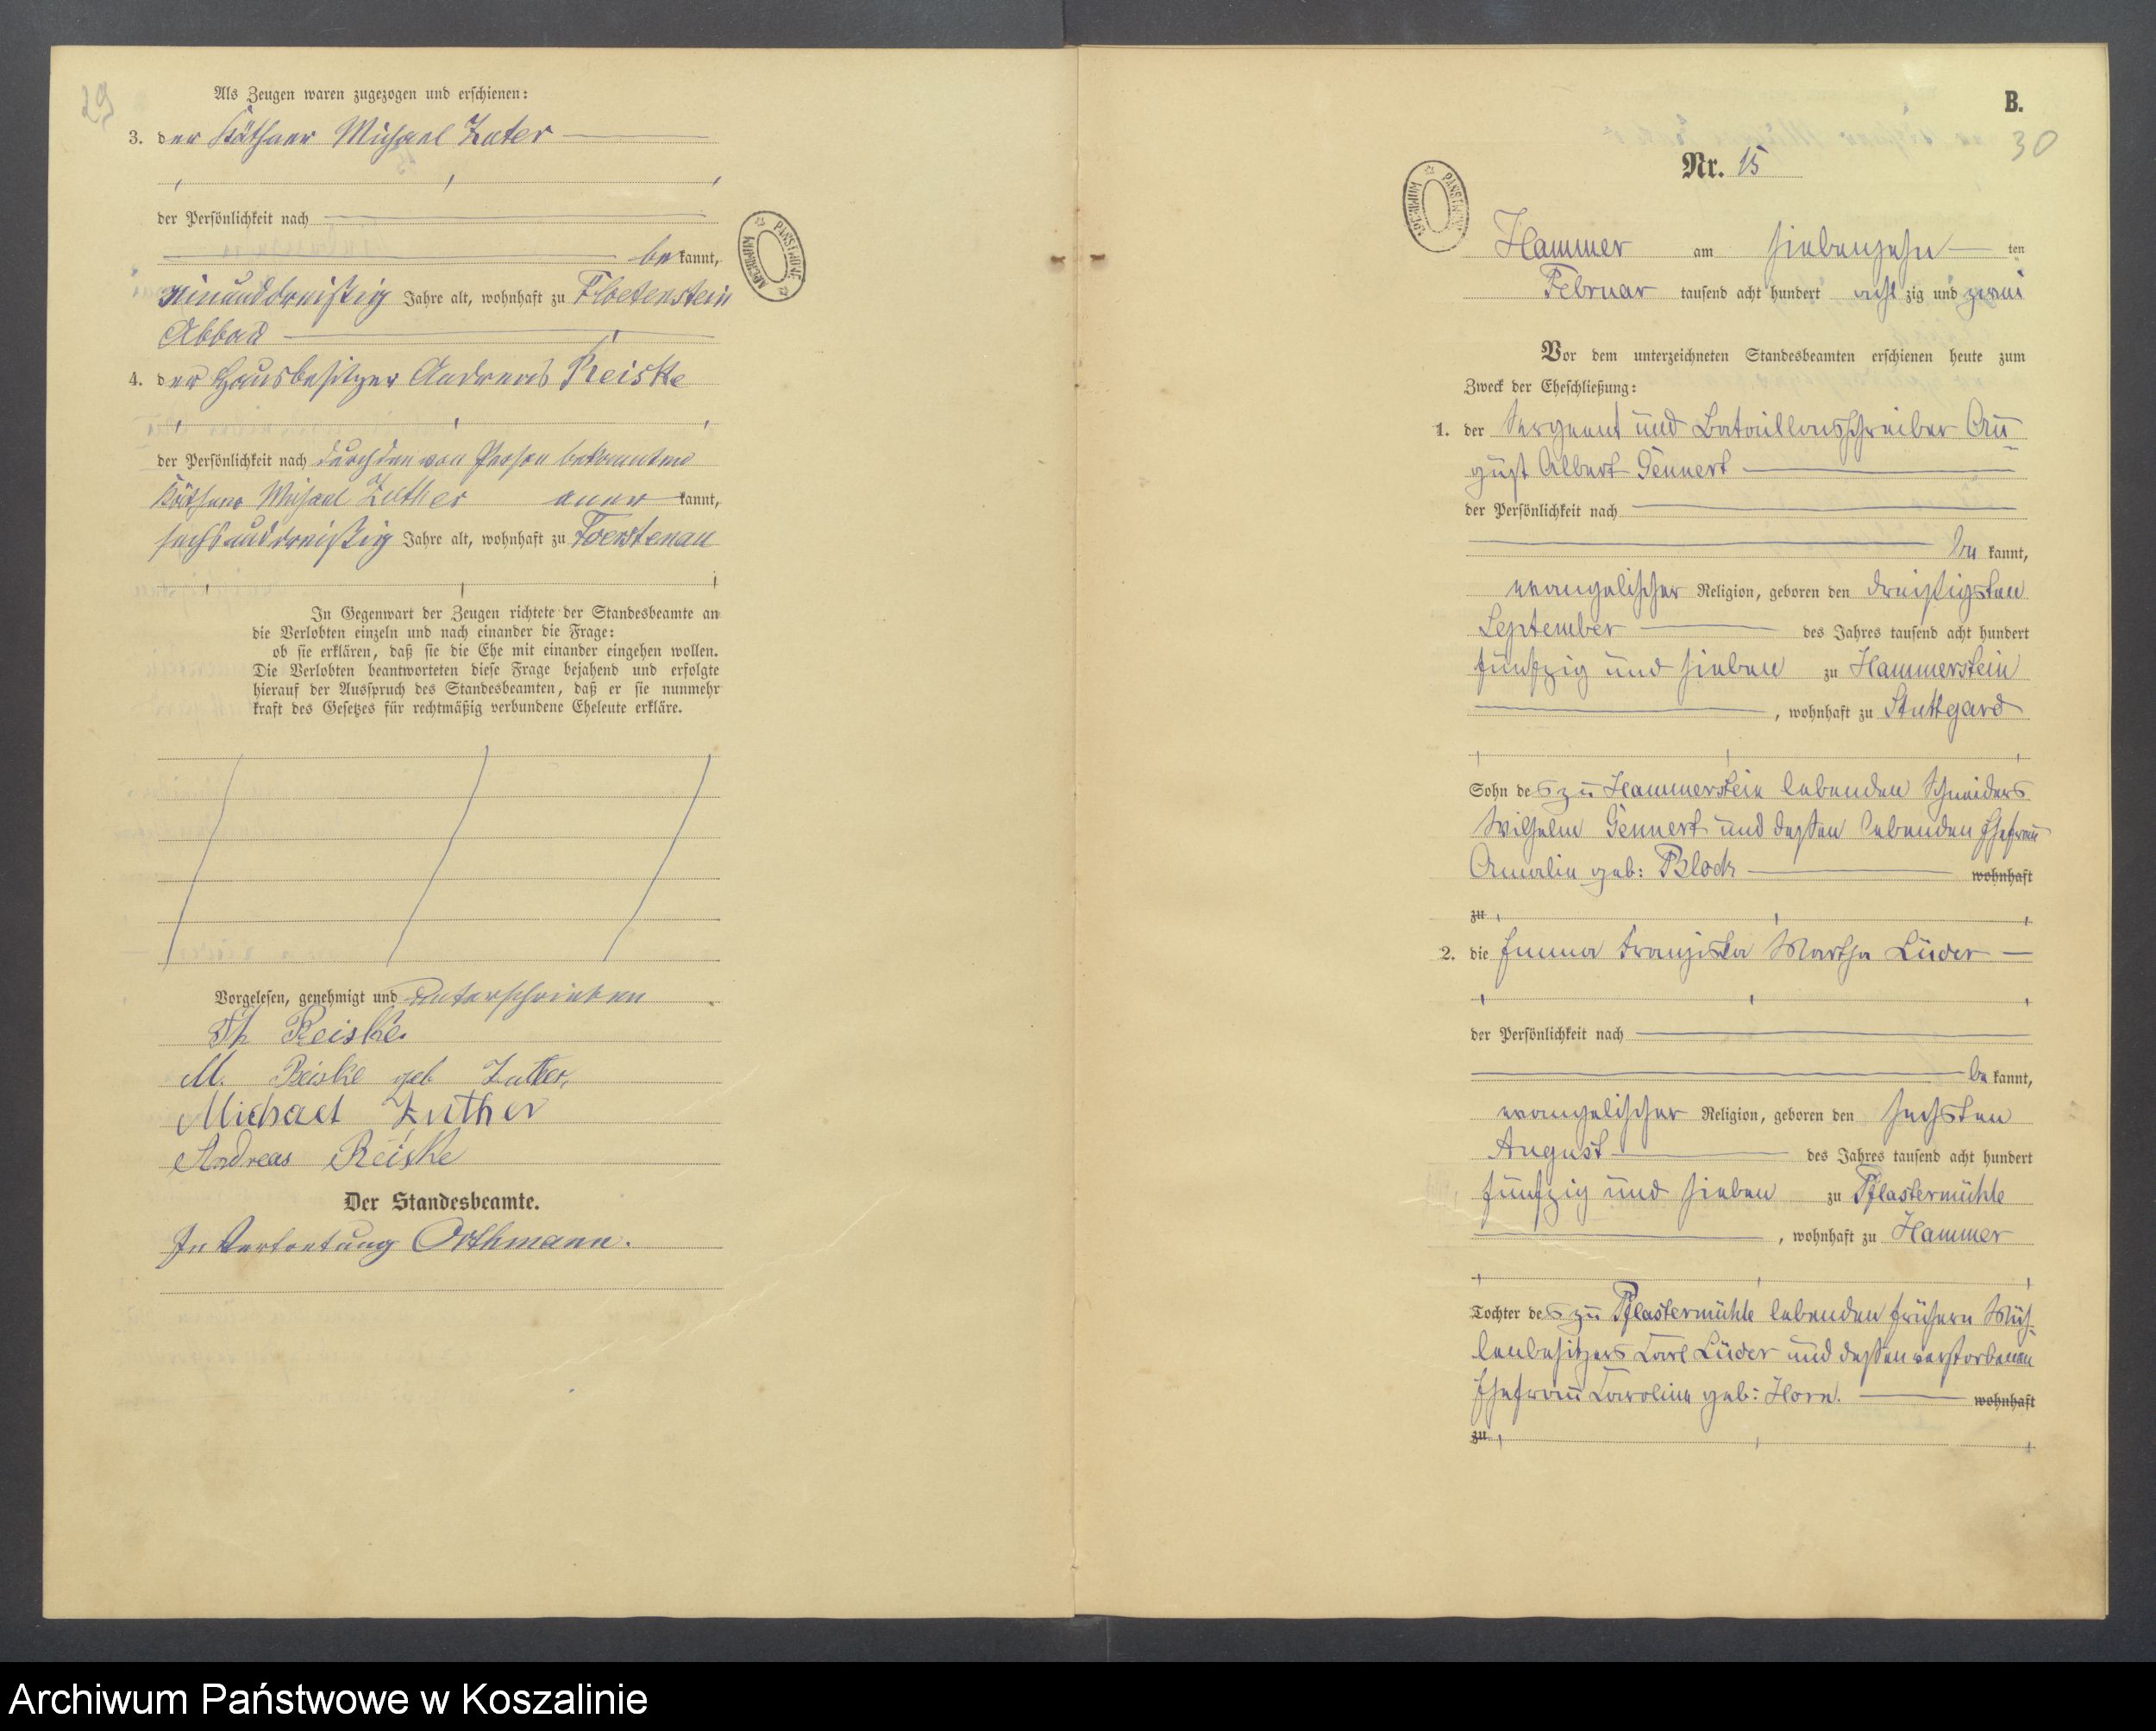 29
Als Zeugen waren zugezogen und erschienen:
3. der Käthner Michael Zuter
der Persönlichkeit nach
be kannt,
neinunddreißig Jahre alt, wohnhaft zu Floetenstein
Abbau
4. der Hausbesitzer Andreas Reiske
der Persönlichkeit nach durch den von Person bekannten
Käthner Michael Zuther aner kannt,
sechsunddreißig Jahre alt, wohnhaft zu Foerstenau
In Gegenwart der Zeugen richtete der Standesbeamte an
die Verlobten einzeln und nach einander die Frage:
ob sie erklären, daß sie die Ehe mit einander eingehen wollen.
Die Verlobten beantworteten diese Frage bejahend und erfolgte
hierauf der Ausspruch des Standesbeamten, daß er sie nunmehr
kraft des Gesetzes für rechtmäßig verbundene Eheleute erkläre.
Vorgelesen, genehmigt und unterschrieben
Th Reiske
M. Reiske geb Zuther,
Michael Zuther
Andreas Reiske
Der Standesbeamte.
In Vertretung Orthmann.
ARCHIWUM PAŃSTWOWE
B.
30
Nr. 15
ARCHIWUM PAŃSTWOWE
Hammer am siebenzehn ten
Februar tausend acht hundert acht zig und zwei
Vor dem unterzeichneten Standesbeamten erschienen heute zum
Zweck der Eheschließung:
1. der Sergeant und Bataillonsschreiber Au
gust Albert Gennert
der Persönlichkeit nach
be kannt,
evangelischer Religion, geboren den dreißigsten
September des Jahres tausend acht hundert
fünfzig und sieben zu Hammerstein
, wohnhaft zu Stuttgard
Sohn des zu Hammerstein lebenden Schneiders
Wilhelm Gennert und dessen lebenden Ehefrau
Amalie geb: Block wohnhaft
zu
2. die Emma Franziska Martha Lüder
der Persönlichkeit nach
be kannt,
evangelischer Religion, geboren den sechsten
August des Jahres tausend acht hundert
fünfzig und sieben zu Pflastermühle
, wohnhaft zu Hammer
Tochter des zu Pflastermühle lebenden frühern Müh-
lenbesitzers Carl Lüder und dessen verstorbenen
Ehefrau Caroline geb: Horn. wohnhaft
zu
Archiwum Państwowe w Koszalinie